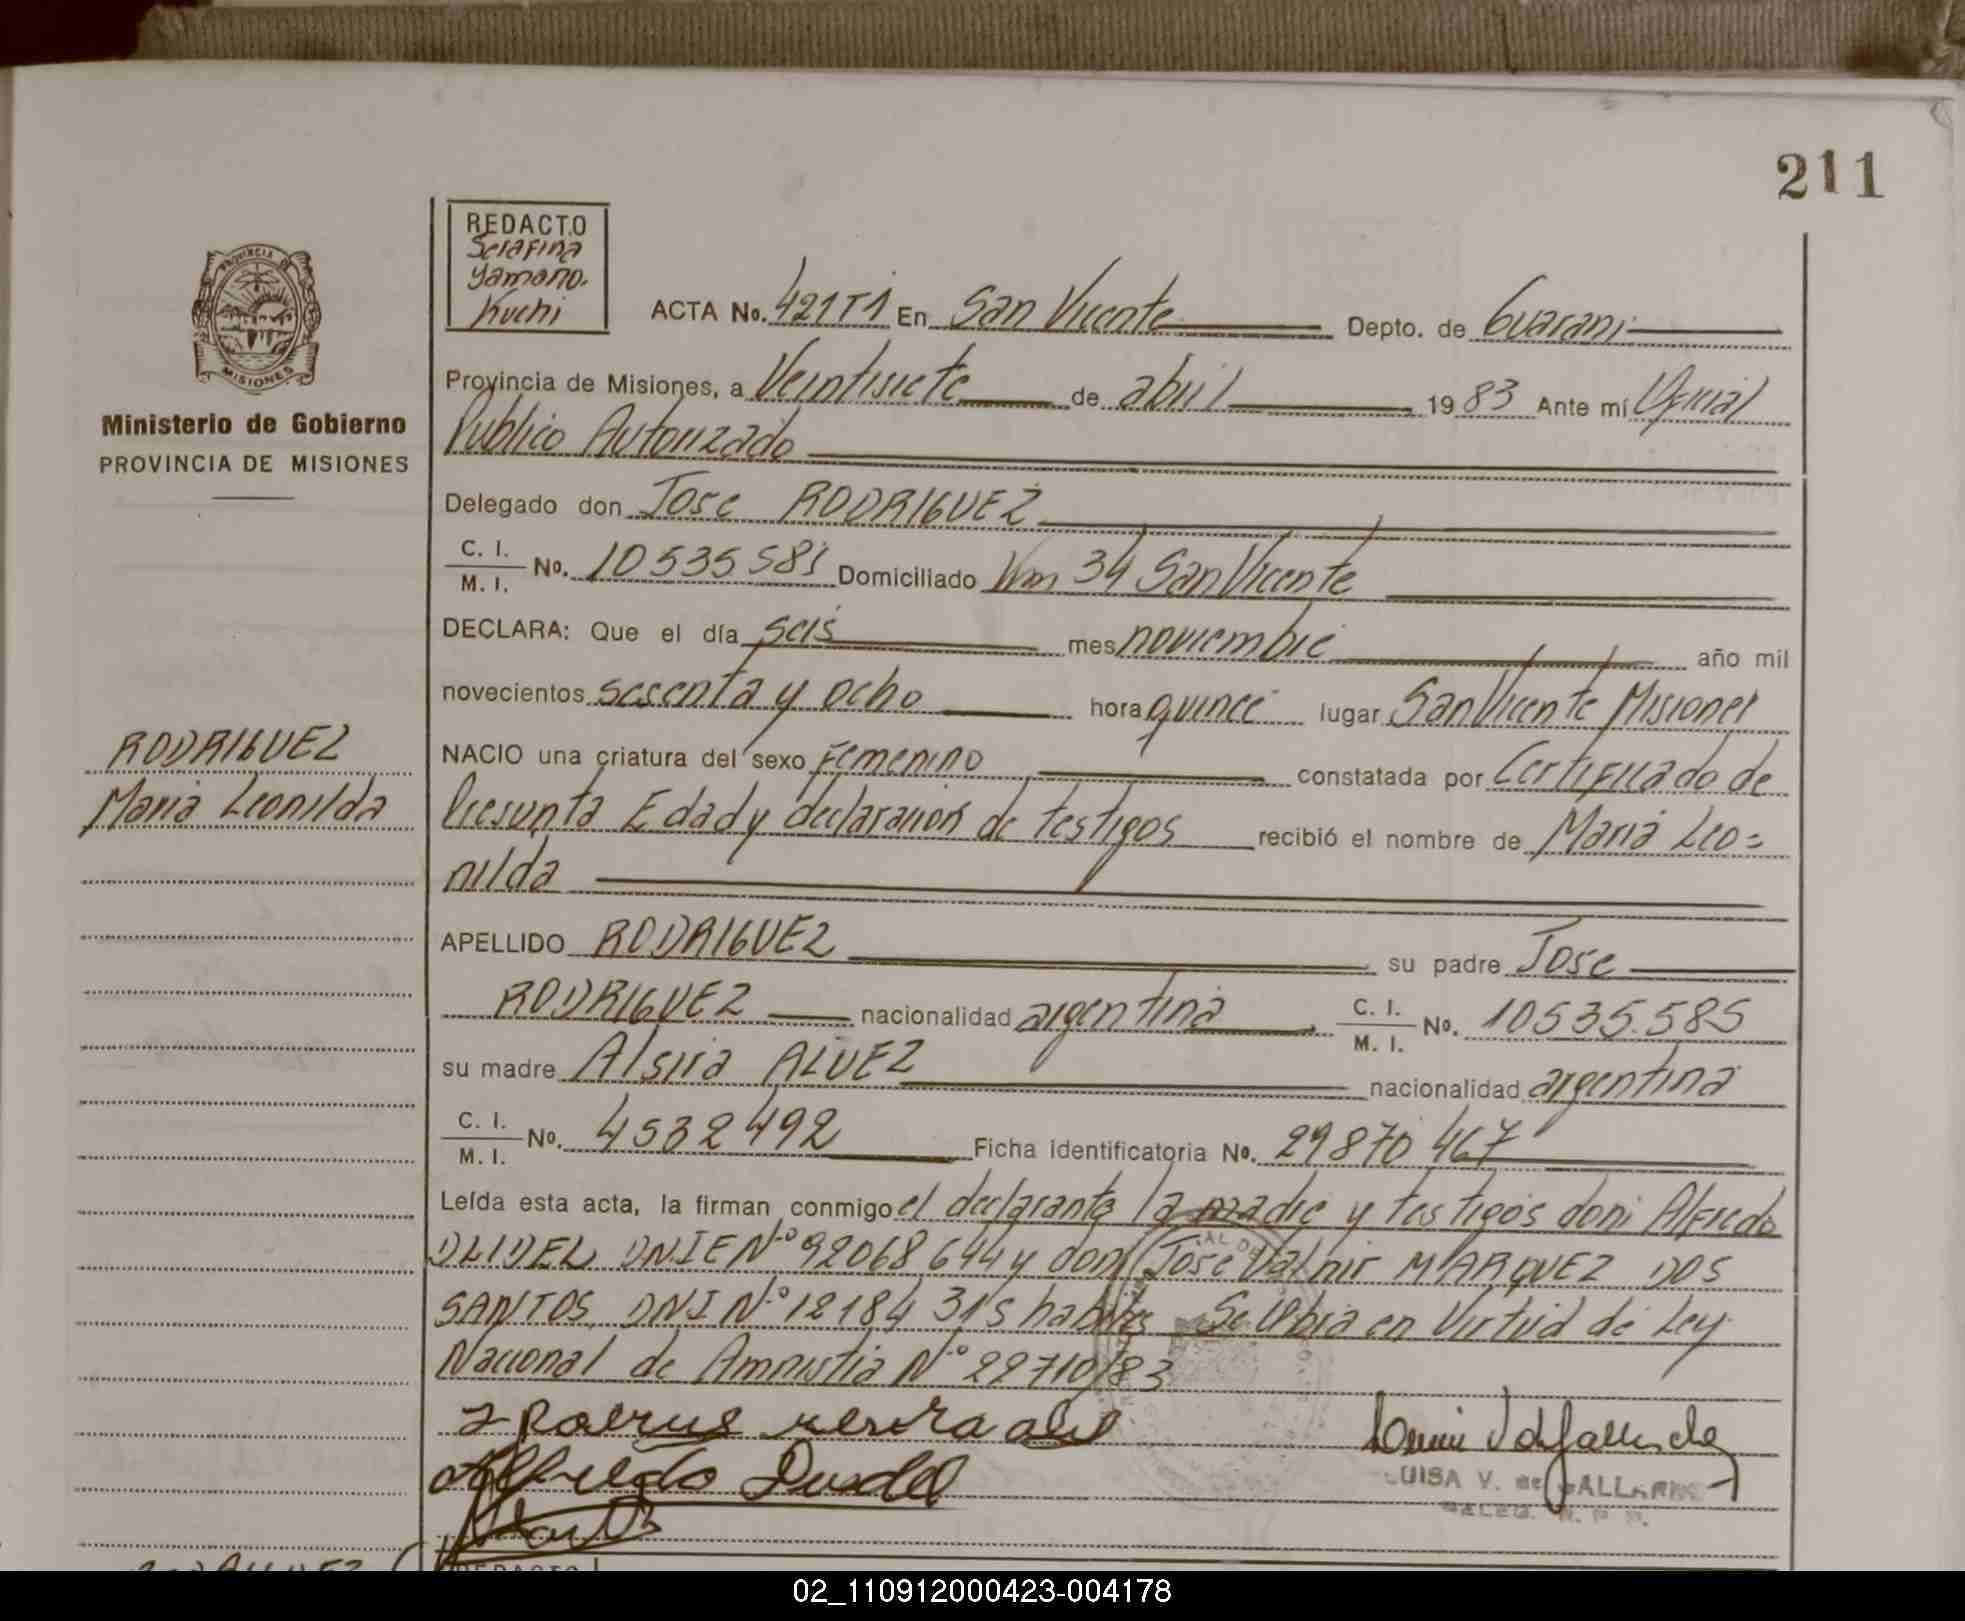 211
REDACTO
Serafina
Yamano.
Kuchi
PROVINCIA DE
MISIONES
Ministerio de Gobierno
PROVINCIA DE MISIONES
ACTA No. 421T1 En San Vicente Depto. de Guarani
Provincia de Misiones, a Veintisiete de abril 1983 Ante mí Oficial
Publico Autorizado
Delegado don Jose RODRIGUEZ
C. I.
M. I. No. 10535581 Domiciliado Km 34 San Vicente
DECLARA: Que el día seis mes noviembre año mil
novecientos sesenta y ocho hora quince lugar San Vicente Misiones
RODRIGUEZ
Maria Leonilda
NACIO una criatura del sexo Femenino constatada por Certificado de
Presunta Edad y declaracion de testigos recibió el nombre de Maria Leo=
nilda
APELLIDO RODRIGUEZ su padre Jose
RODRIGUEZ nacionalidad argentina C. I.
M. I. No. 10535.585
su madre Alsira ALVEZ nacionalidad argentina
C. I.
M. I. No. 4532492 Ficha identificatoria No. 29870467
Leída esta acta, la firman conmigo el declarante la madre y testigos don: Alfredo
DNIE Nº 92068644 y don Jose Valmir MARQUEZ DOS
SANTOS, DNI Nº 12184315 habiles Se labra en Virtud de Ley
Nacional de Amnistia Nº 22710/83
Alfredo
LUISA V. de GALLARDO
02_110912000423-004178